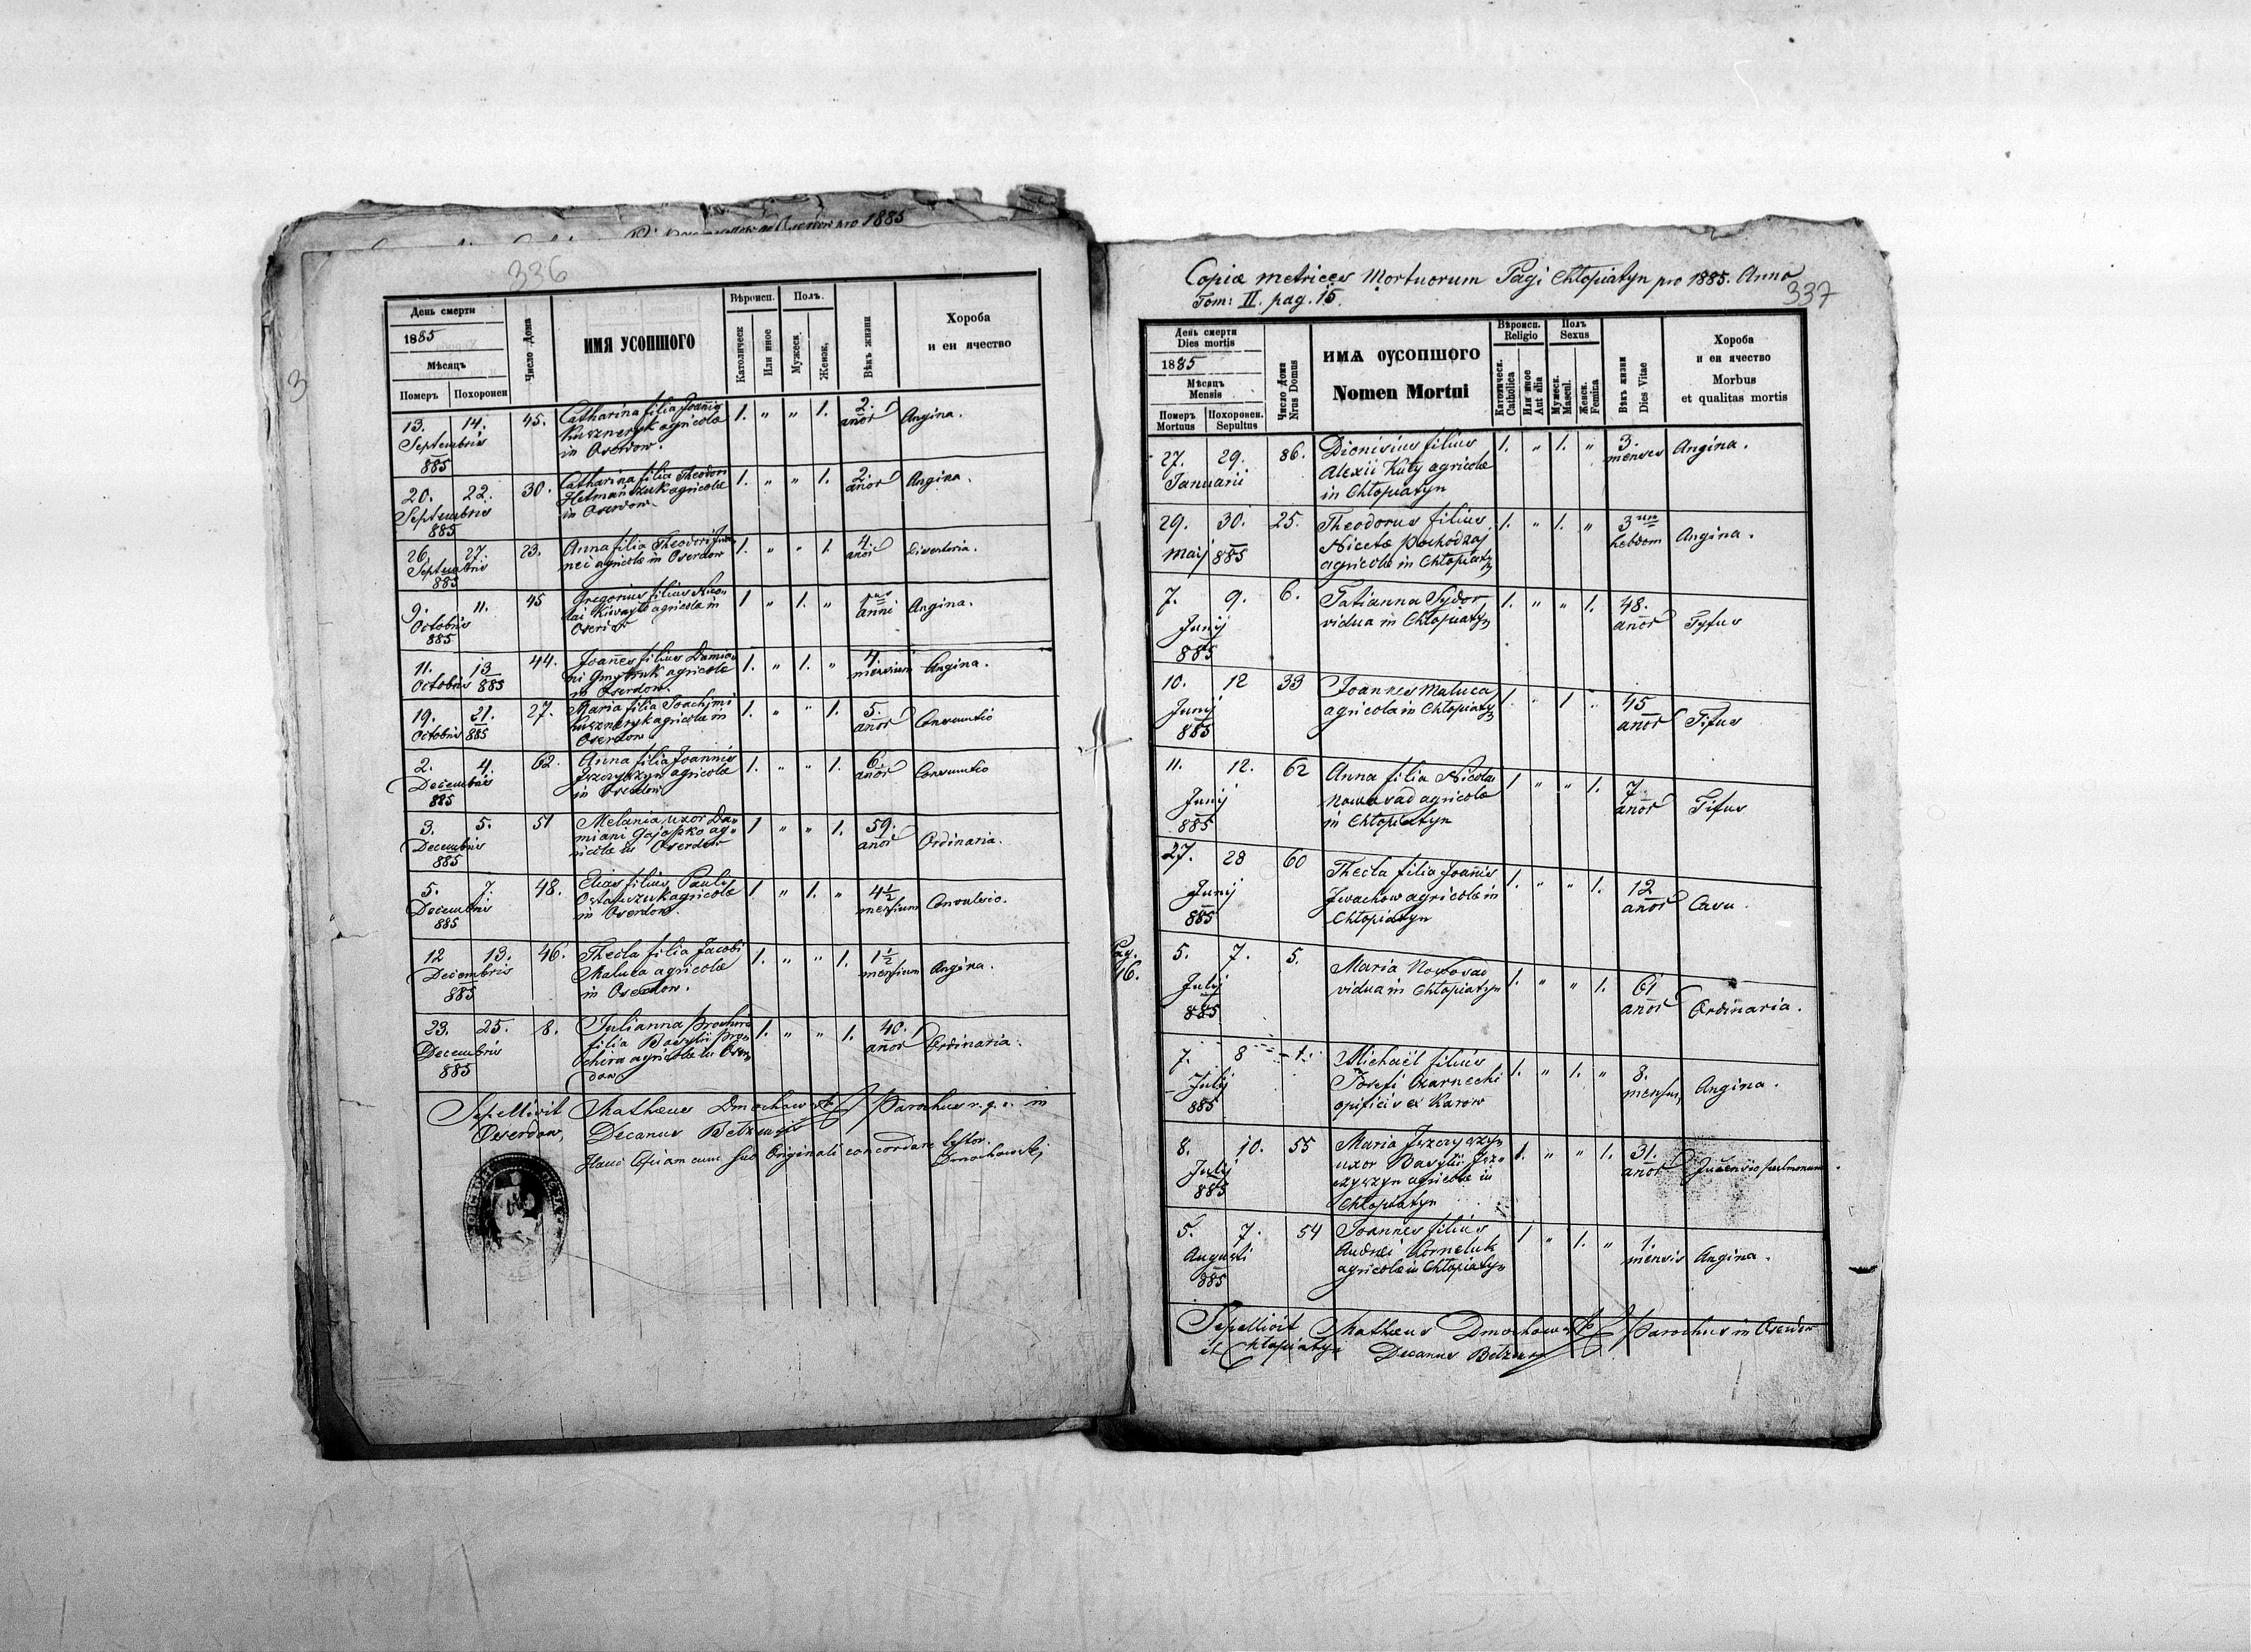 pro 1885
336
День смерти
1885
Мѣсяць
Померъ Похоронен
Число Дома
ИМЯ УСОПШОГО
Вѣроисп.
Католическ
Или иное
Полъ.
Мужеск.
Женск.
Вѣкъ жизни
Хороба
и еи ячество
13. 14. 45. Catharina filia Joannis 1. " " 1. 2. Angina.
Septembris agricolæ anor
885 in Oserdow.
20. 22. 30. Catharina filia Theodori 1. " " 1. 2. Angina.
Septembris Hetmańczuk agricolæ anor
885 in Oserdow.
26. 27. 23. Anna filia Theodori 1. " " 1. 4.
Septembris agricolæ in Oserdow anor
885
9. 11. 45 Gregorius filius Nico- 1 " 1. " Angina.
Octobris lai agricolæ in anni
885 Oserdow
11. 13 44. Joannes filius Damia- 1. " 1. " 4 Angina.
Octobris 885 ni agricolæ mensium
in Oserdow.
19. 21. 27. Maria filia Joachimi 1. " " 1. 5. Consumtio
Octobris 885 agricolæ in anor
Oserdow
2. 4. 62. Anna filia Joannis 1. " " 1. 6. Consumtio
Decembris agricolæ anor
885 in Oserdow
3. 5. 51 Melania uxor Da- 1 " " 1. 59. Ordinaria.
Decembris miani Gajosko ag- anor
885 ricolæ in Oserdow
5. 7. 48. Elias filius Pauli 1 " 1. " 4½ Convulsio.
Decembris Ostapczuk agricolæ mensium
885 in Oserdow.
12 13. 46. Thecla filia Jacobi 1. " " 1. 1½ Angina.
Decembris Maluca agricolæ mensium
885 in Oserdow.
23. 25. 8. Julianna Prochira 1. " " 1. 40. Ordinaria.
Decembris filia Basylii Pro- anor
885 chira agricolæ in Oser-
dow
Sepelivit Mathæus Dmochowski Parochus r. g. c. in
Oserdow, Decanus Belzensis
Hanc Copiam cum suo Originali concordare testor.
Dmochowski
Copia metrices Mortuorum Pagi Chłopiatyn pro 1885. Anno
Tom: II. pag. 15.
337
День смерти
Dies mortis
1885
Мѣсяць
Mensis
Померъ Похоронен.
Mortuus Sepultus
Число Дома
Nrus Domus
ИМѦ ОУСОПШОГО
Nomen Mortui
Вѣроисп.
Religio
Католическ.
Catholica
Или иное
Aut alia
Полъ
Sexus
Мужеск.
Mascul.
Женск.
Femina
Вѣкъ жизни
Dies Vitae
Хороба
и еи ячество
Morbus
et qualitas mortis
27. 29. 86. Dionisius filius 1. " 1. " 3. Angina.
Januarii Alexii Kuty agricolæ menses
in Chłopiatyn
29. 30. 25. Theodorus filius 1. " 1. " 3 Angina.
Maij 885 Nicetæ Pochodzaj hebdom
agricolæ in Chłopiatyn
7. 9. 6. Tatianna Sydor 1. " " 1. 48. Tyfus
Junij vidua in Chłopiatyn anor
885
10. 12 33 Joannes Maluca 1. " 1 " 45 Tifus
Junij agricola in Chłopiatyn anor
885
11. 12. 62 Anna filia Nicolai 1 " " 1. 7. Tifus
Junij Nowosad agricolæ anor
885 in Chłopiatyn
27. 28 60 Thecla filia Joannis 1. " " 1. 12 Casu.
Junij Iwachow agricolæ in anor
885 Chłopiatyn
Pag.
16.
5. 7. 5. Maria Nowosad 1. " " 1. 61 Ordinaria.
Julij vidua in Chłopiatyn anor
885
7. 8 1. Michaël filius 1. " 1. " 8. Angina.
Julij Josefi Czarnecki mensium
885 opificis ex Karow
8. 10. 55 Maria 1. " " 1. 31.
Julij uxor Basylii anor pulmonum.
885 agricolæ in
Chłopiatyn
5. 7. 54 Joannes filius 1 " 1. " 1. Angina.
Augusti Andrei Korneluk mensis
885 agricolæ in Chłopiatyn
Sepelivit Mathæus Dmochowski Parochus in Oserdow
et Chłopiatyn Decanus Belzensis